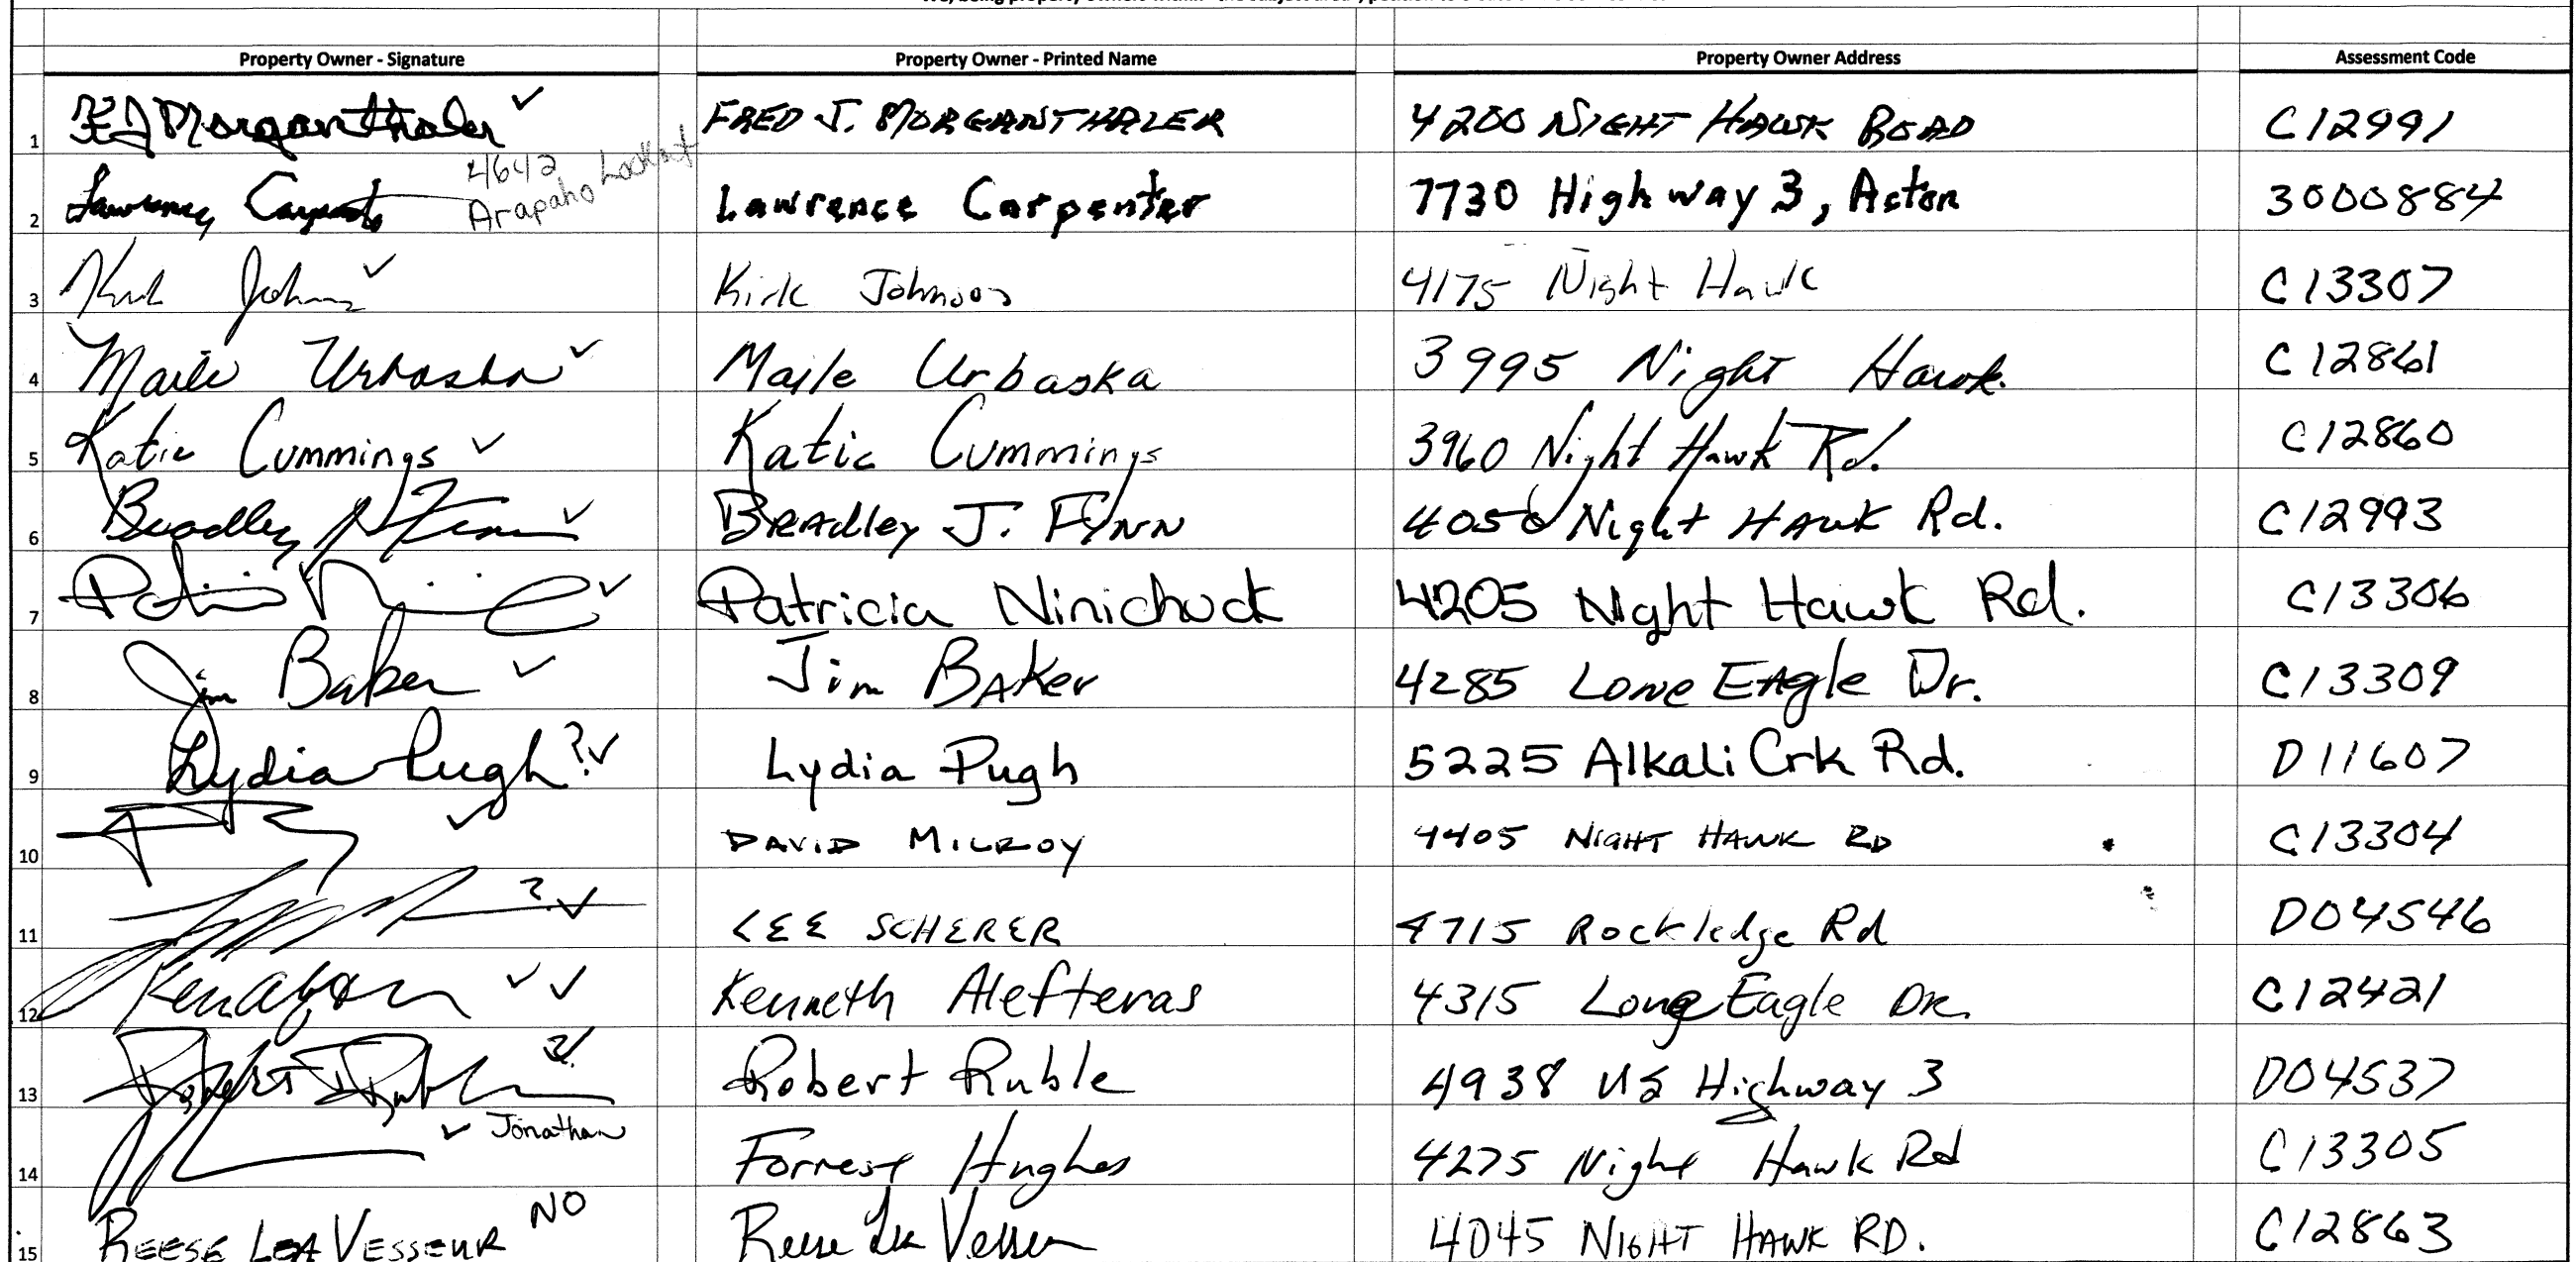 Property Owner - Signature Property Owner - Printed Name Property Owner Address Assessment Code
1 FJ Morganthaler ✓ FRED J. MORGANTHALER 4200 NIGHT HAWK ROAD C12991
4642 Arapaho Lookout
2 Lawrence Carpenter Lawrence Carpenter 7730 Highway 3, Acton 3000884
3 Kirk Johnson ✓ Kirk Johnson 4175 Night Hawk C13307
4 Maile Urbaska ✓ Maile Urbaska 3995 Night Hawk C12861
5 Katie Cummings ✓ Katie Cummings 3960 Night Hawk Rd. C12860
6 Bradley J Flynn ✓ BRAdley J. FlyNN 4050 Night HAwk Rd. C12993
7 ✓ Patricia Ninichuck 4205 Night Hawk Rd. C13306
8 Jim Baker ✓ Jim BAKer 4285 LoNe EAgle Dr. C13309
9 Lydia Pugh ? ✓ Lydia Pugh 5225 Alkali Crk Rd. D11607
10 ✓ DAVID MILROY 4405 NIGHT HAWK RD C13304
11 ? ✓ LEE SCHERER 4715 Rockledge Rd D04546
12 ✓ ✓ Kenneth Alefteras 4315 Lone Eagle DR. C12421
13 Robert Ruble Robert Ruble 4938 US Highway 3 D04537
✓ Jonathan
14 Forrest Hughes 4275 Night Hawk Rd C13305
15 REESE LEA VESSEUR NO Reese Lea Vesseur 4045 NIGHT HAWK RD. C12863